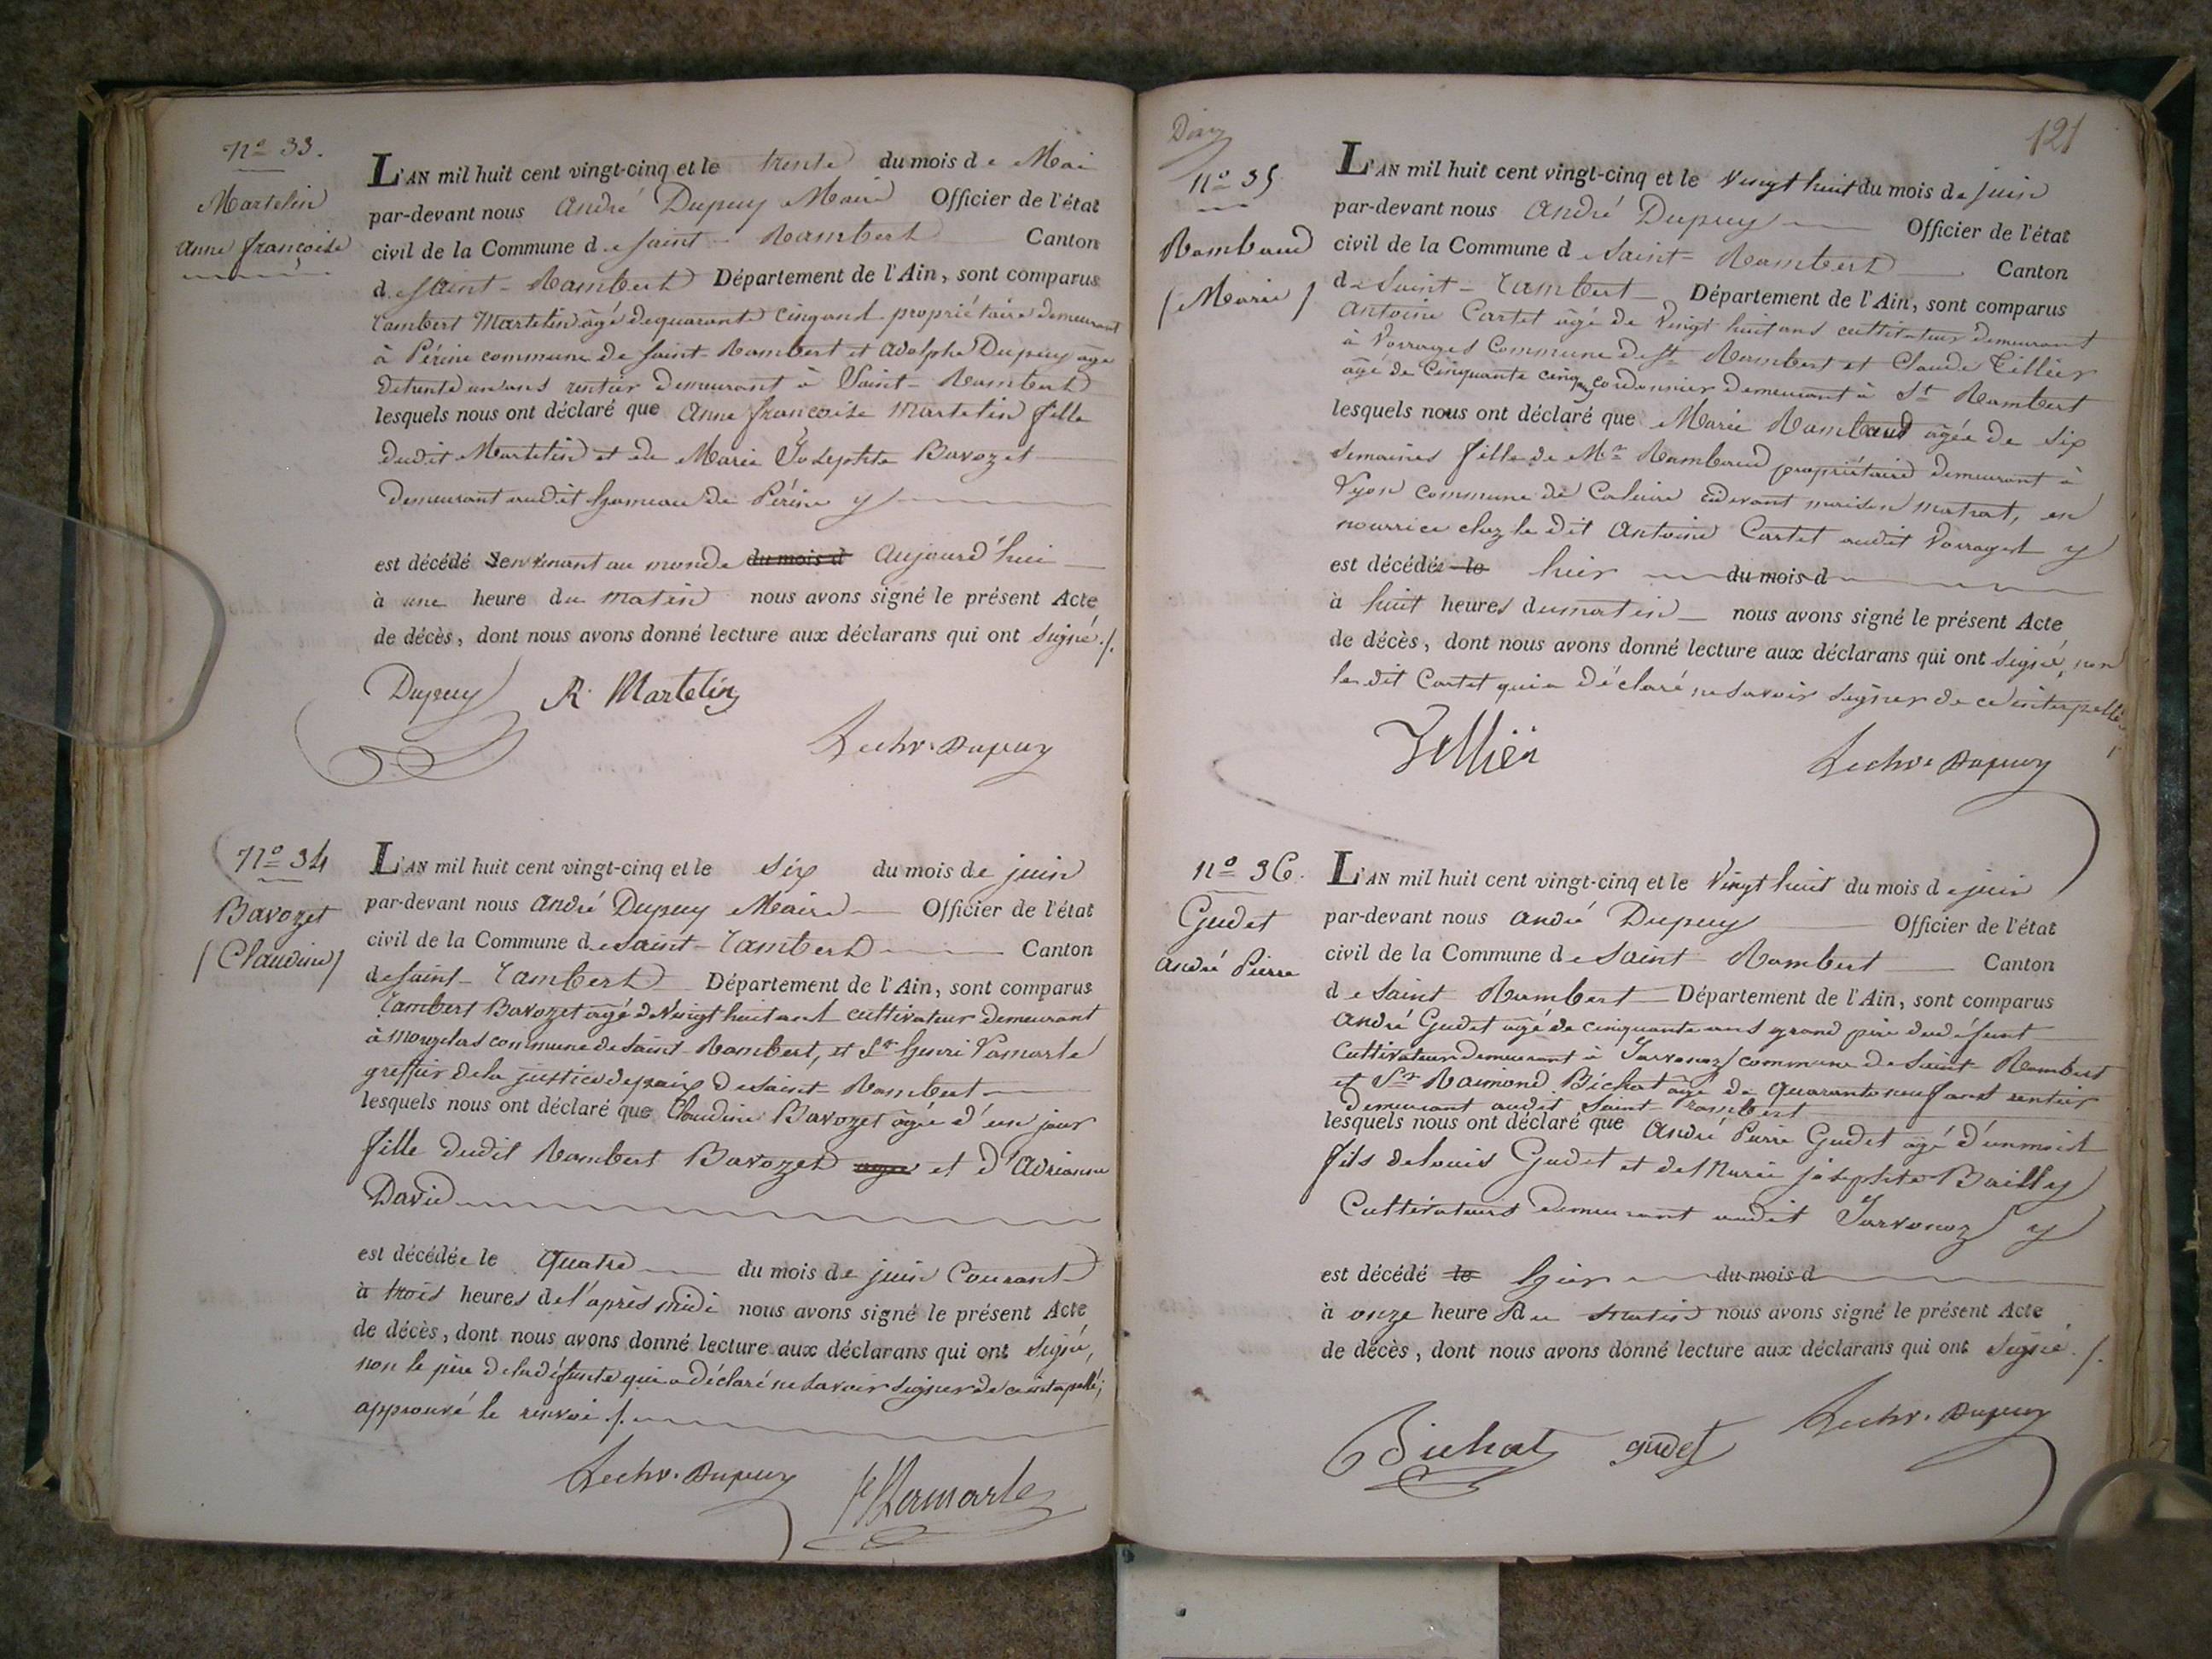 N.º 33.
Martelin
Anne françoise
L'AN mil huit cent vingt-cinq et le trente du mois de Mai
par-devant nous André Dupuy Maire Officier de l'état
civil de la Commune de Saint-Rambert Canton
de Saint-Rambert Département de l'Ain, sont comparus
Rambert Martelin âgé de quarante cinq ans propriétaire demeurant
à Périne commune de Saint-Rambert et Adolphe Dupuy âgé
de trente un ans rentier demeurant à Saint-Rambert
lesquels nous ont déclaré que Anne françoise Martelin fille
dudit Martelin et de Marie Josephte Bavozet
demeurant audit hameau de Périne y
est décédé en venant au monde du mois d aujourd'hui
à une heure du matin nous avons signé le présent Acte
de décès, dont nous avons donné lecture aux déclarans qui ont signé ./.
Dupuy R. Martelin
Dupuy
N.º 34
Bavozet
(Claudine)
L'AN mil huit cent vingt-cinq et le six du mois de juin
par-devant nous André Dupuy Maire Officier de l'état
civil de la Commune de Saint-Rambert Canton
de Saint-Rambert Département de l'Ain, sont comparus
Rambert Bavozet âgé de vingt huit ans cultivateur demeurant
à mouplas commune de Saint-Rambert, et Sr henri Lamarle
greffier de la justice de paix de Saint-Rambert
lesquels nous ont déclaré que Claudine Bavozet âgée d'un jour
fille dudit Rambert Bavozet et d'Adrianne
David
est décédée le quatre du mois de juin Courant
à trois heures de l'après midi nous avons signé le présent Acte
de décès, dont nous avons donné lecture aux déclarans qui ont signé,
non le père de la défunte qui a déclaré ne savoir signer de ce interpellé;
approuvé le renvoi ./.
Dupuy Lamarle
121
N.º 35
Rambaud
(Marie)
L'AN mil huit cent vingt-cinq et le vingt huit du mois de juin
par-devant nous André Dupuy Officier de l'état
civil de la Commune de Saint-Rambert Canton
de Saint-Rambert Département de l'Ain, sont comparus
Antoine Cartet âgé de vingt huit ans cultivateur demeurant
à Vorrages Commune de St Rambert et Claude Tillier
âgé de Cinquante cinq ans cordonnier demeurant à St Rambert
lesquels nous ont déclaré que Marie Rambaud âgée de six
semaines fille de Mr Rambaud propriétaire demeurant à
Lyon commune de Caluire cidevant maison matrat, en
nourrice chez le dit Antoine Cartet audit Vorrages y
est décédée le hier du mois d
à huit heures du matin nous avons signé le présent Acte
de décès, dont nous avons donné lecture aux déclarans qui ont signé, non
le dit Cartet qui a déclaré ne savoir signer de ce interpellé
Tillier Dupuy
N.º 36.
Gudet
André Pierre
L'AN mil huit cent vingt-cinq et le vingt huit du mois de juin
par-devant nous André Dupuy Officier de l'état
civil de la Commune de Saint Rambert Canton
de Saint Rambert Département de l'Ain, sont comparus
André Gudet âgé de cinquante ans grand père du défunt
Cultivateur demeurant à Javornoz commune de Saint-Rambert
et Sr Raimond Bichat âgé de quarante neuf ans rentier
demeurant audit Saint-Rambert
lesquels nous ont déclaré que André Pierre Gudet âgé d'un mois
fils de louis Gudet et de Marie josephte Bailly
Cultivateurs demeurant audit Javornoz y
est décédé le hier du mois d
à onze heures du matin nous avons signé le présent Acte
de décès, dont nous avons donné lecture aux déclarans qui ont signé ./.
Bichat gudet Dupuy